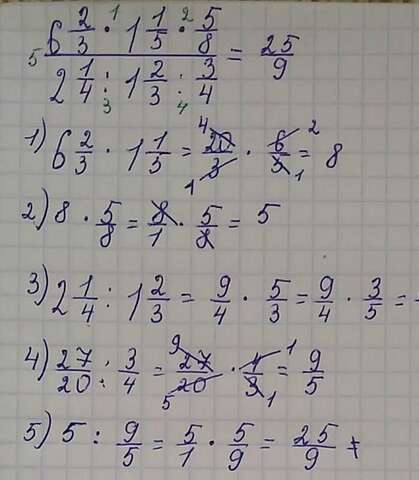 6 2/3 ·¹ 1 1/5 ·² 5/8
5 ———————— = 25/9
2 1/4 :₃ 1 2/3 :₄ 3/4
1) 6 2/3 · 1 1/5 = 20/3 · 6/5 = 8 (4, 1, 2, 1)
2) 8 · 5/8 = 8/1 · 5/8 = 5
3) 2 1/4 : 1 2/3 = 9/4 · 5/3 = 9/4 · 3/5 =
4) 27/20 : 3/4 = 27/20 · 4/3 = 9/5 (9, 5, 1, 1)
5) 5 : 9/5 = 5/1 · 5/9 = 25/9